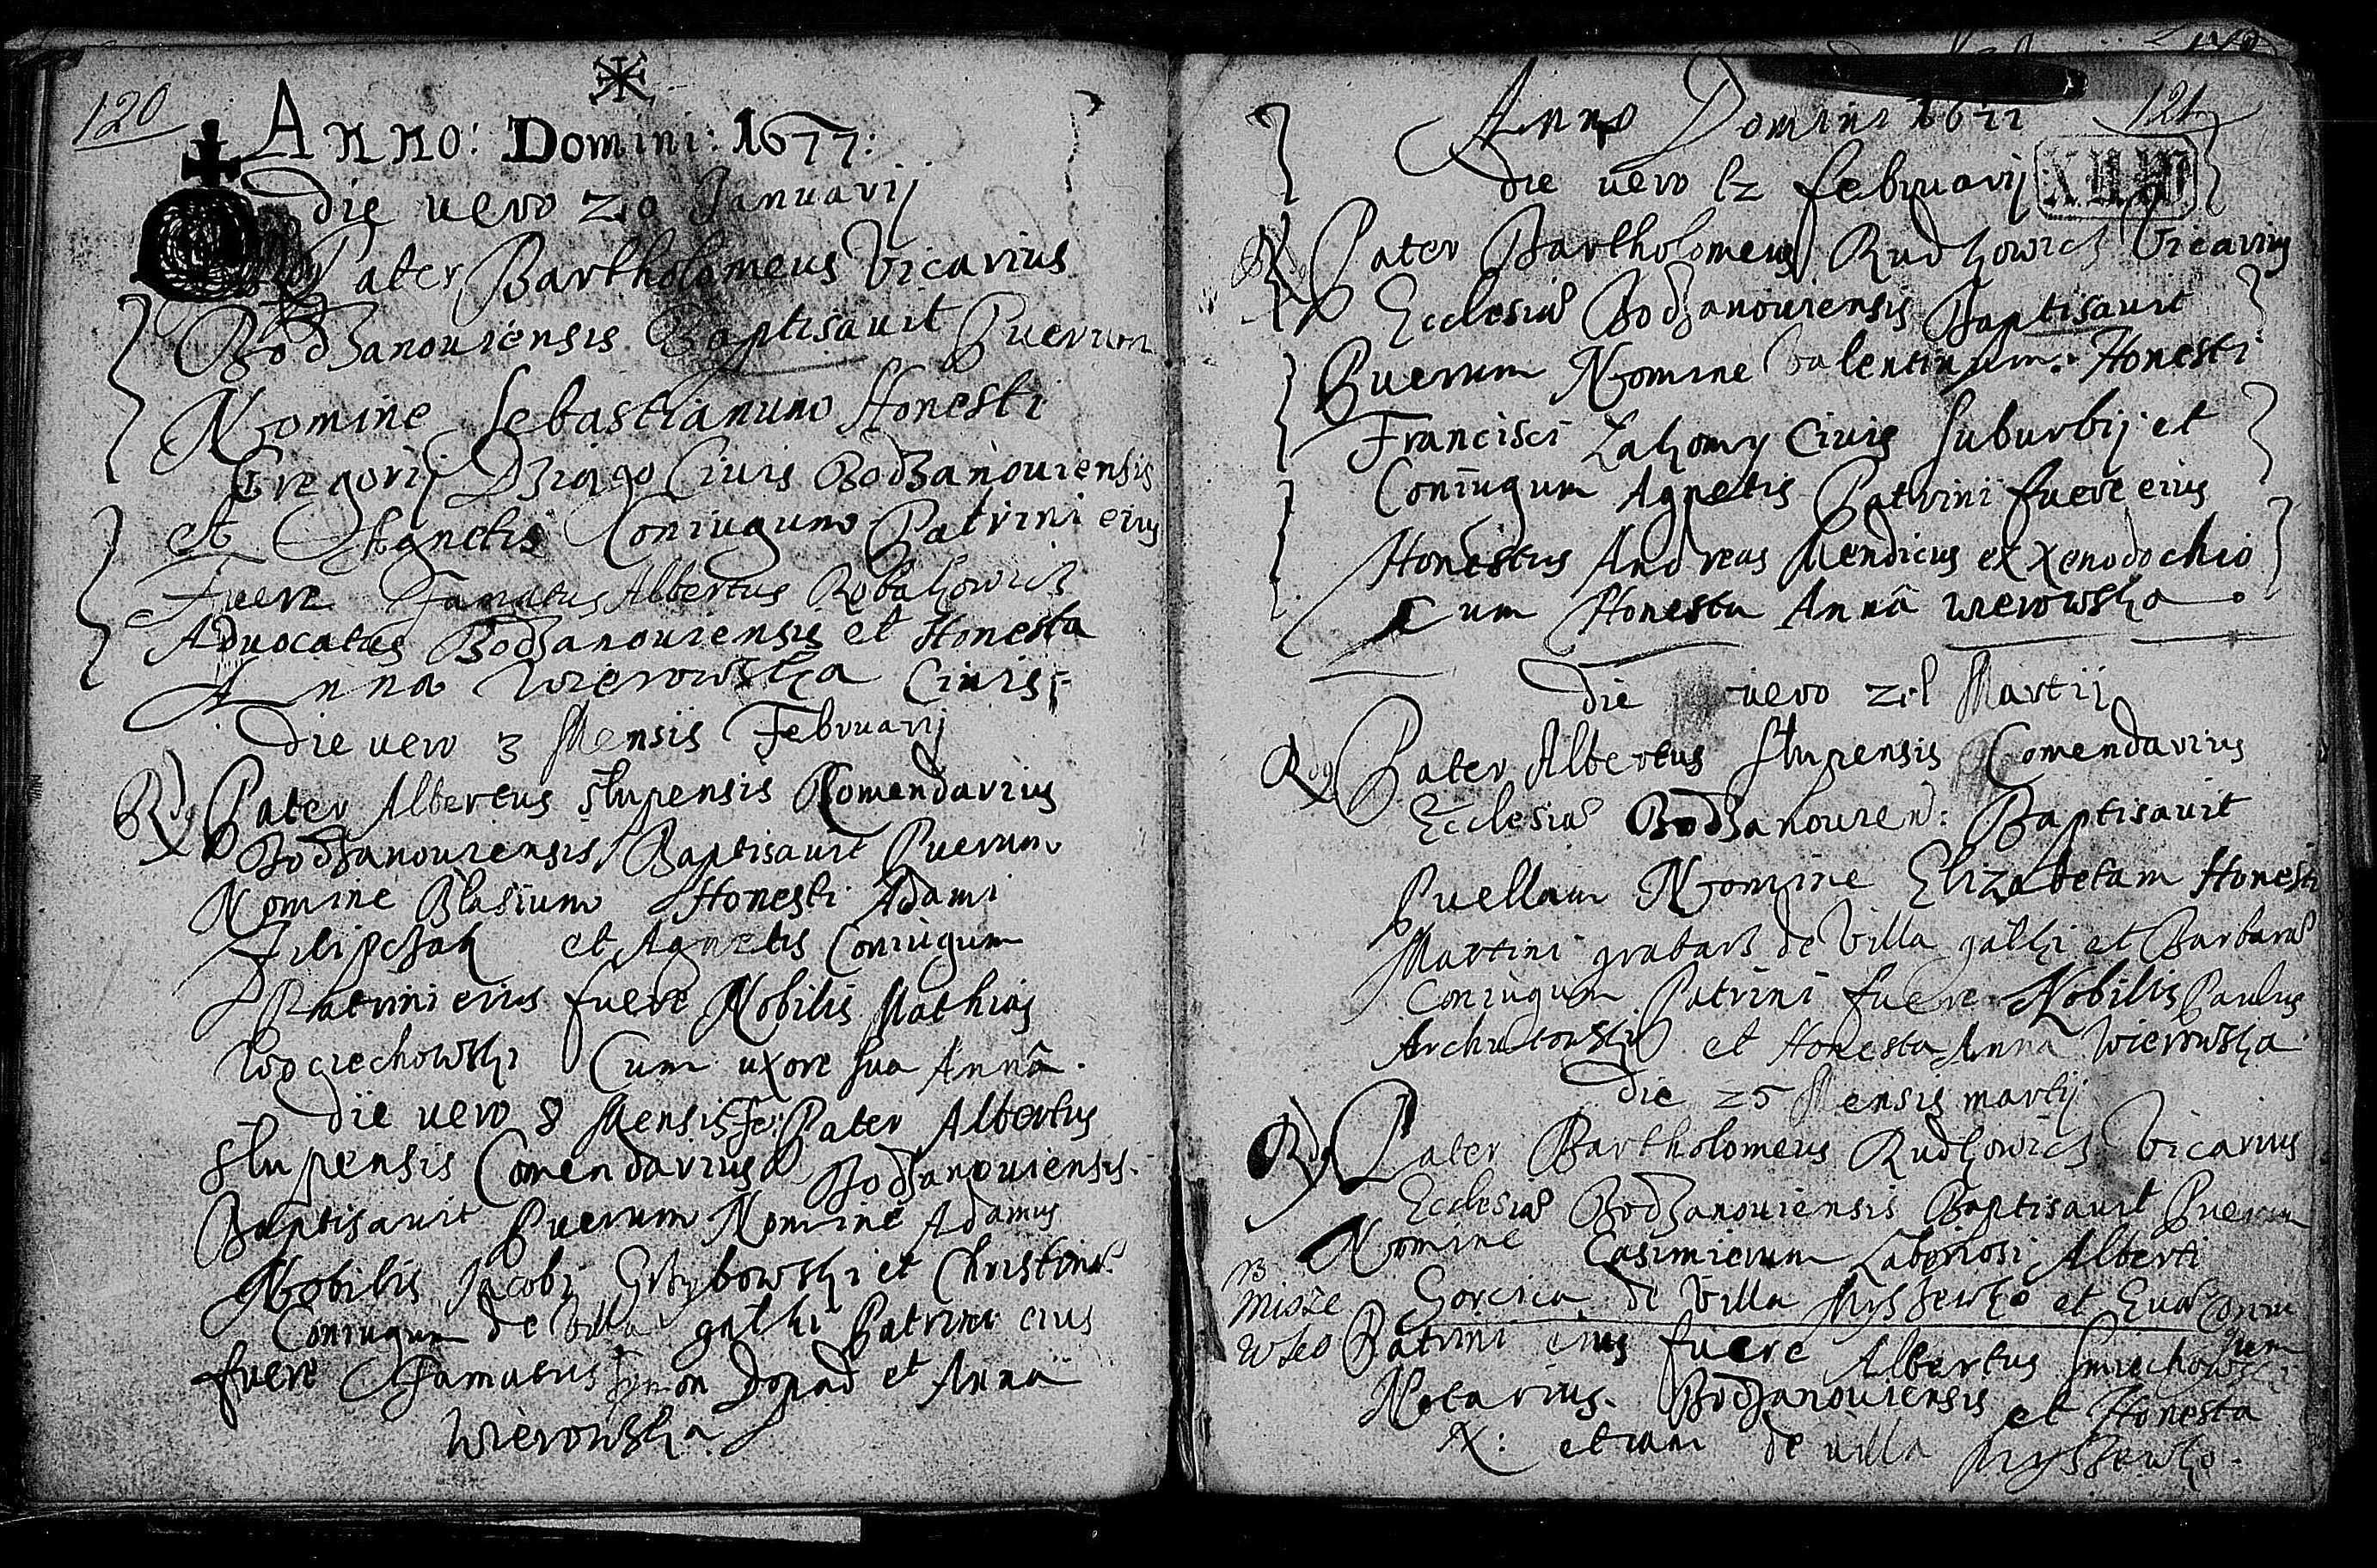 120
Anno: Domini: 1677:
Die vero 20 Januarij
Pater Bartholomeus Vicarius
Bodzanouiensis Baptisauit Puerum
Nomine Sebastianum Honesti
Gregorij Ciuis Bodzanouiensis
et Coniugum Patrini eius
Fuere Famatus Albertus
Aduocatus Bodzanouiensis et Honesta
Anna Wierowska Ciuis
Die vero 3 Mensis Februarij
Rdg Pater Albertus Slupensis Comendarius
Bodzanouiensis Baptisauit Puerum
Nomine Blasium Honesti Adami
Filipczak et Agnetis Coniugum
Patrini eius fuere Nobilis Mathias
Woyciechowski Cum uxore sua Annâ.
Die vero 8 Mensis fe: Pater Albertus
Slupensis Comendarius Bodzanouiensis.
Baptisauit Puerum Nomine Adamus
Nobilis Jacobi Grzybowski et Christinæ
Coniugum de Villa gałki Patrini eius
fuere Famatus et Anna
Wierowska
121
Anno Domini 1677
die uero 12 februarij
Pater Bartholomeus Rudkowicz Vicarius
Ecclesiæ Bodzanouiensis Baptisauit
Puerum Nomine Valentinum. Honesti
Francisci Ciuis Suburbij et
Coniugum Agnetis Patrini fuere eius
Honestus Andreas Mendicus ex Xenodochio
Cum Honesta Annâ Wierowska
Die uero 21 Martij
Rdg Pater Albertus Slupensis Comendarius
Ecclesiæ Bodzanouien: Baptisauit
Puellam Nomine Elizabetam Honesti
Martini grabarz de Villa gałki et Barbaræ
Coniugum Patrini fuere Nobilis Paulus
et Honesta Anna Wierowska
Die 25 Mensis martij
Rdg Pater Bartholomeus Rudkowicz Vicarius
Ecclesiæ Bodzanouiensis Baptisauit Puerum
Nomine Casimierum Laboriosi Alberti
de Villa et Euæ Coniu
gum
Patrini eius fuere Albertus Smiechowski
Notarius. Bodzanouiensis et Honesta
N: etiam de uilla